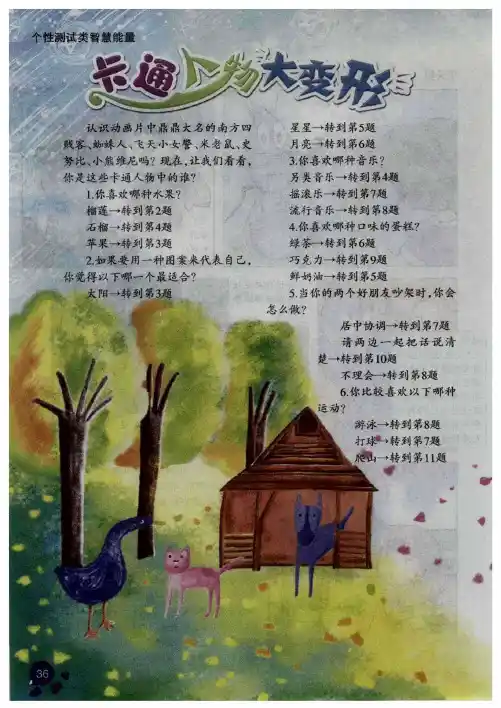 个性测试类智慧能量
卡通人物大变形
认识动画片中鼎鼎大名的南方四
贱客、蜘蛛人、飞天小女警、米老鼠、史
努比、小熊维尼吗？现在，让我们看看，
你是这些卡通人物中的谁？
1.你喜欢哪种水果？
榴莲→转到第2题
石榴→转到第4题
苹果→转到第3题
2.如果要用一种图案来代表自己，
你觉得以下哪一个最适合？
太阳→转到第3题
星星→转到第5题
月亮→转到第6题
3.你喜欢哪种音乐？
另类音乐→转到第4题
摇滚乐→转到第7题
流行音乐→转到第8题
4.你喜欢哪种口味的蛋糕？
绿茶→转到第6题
巧克力→转到第9题
鲜奶油→转到第5题
5.当你的两个好朋友吵架时，你会
怎么做？
居中协调→转到第7题
请两边一起把话说清
楚→转到第10题
不理会→转到第8题
6.你比较喜欢以下哪种
运动？
游泳→转到第8题
打球→转到第7题
爬山→转到第11题
36